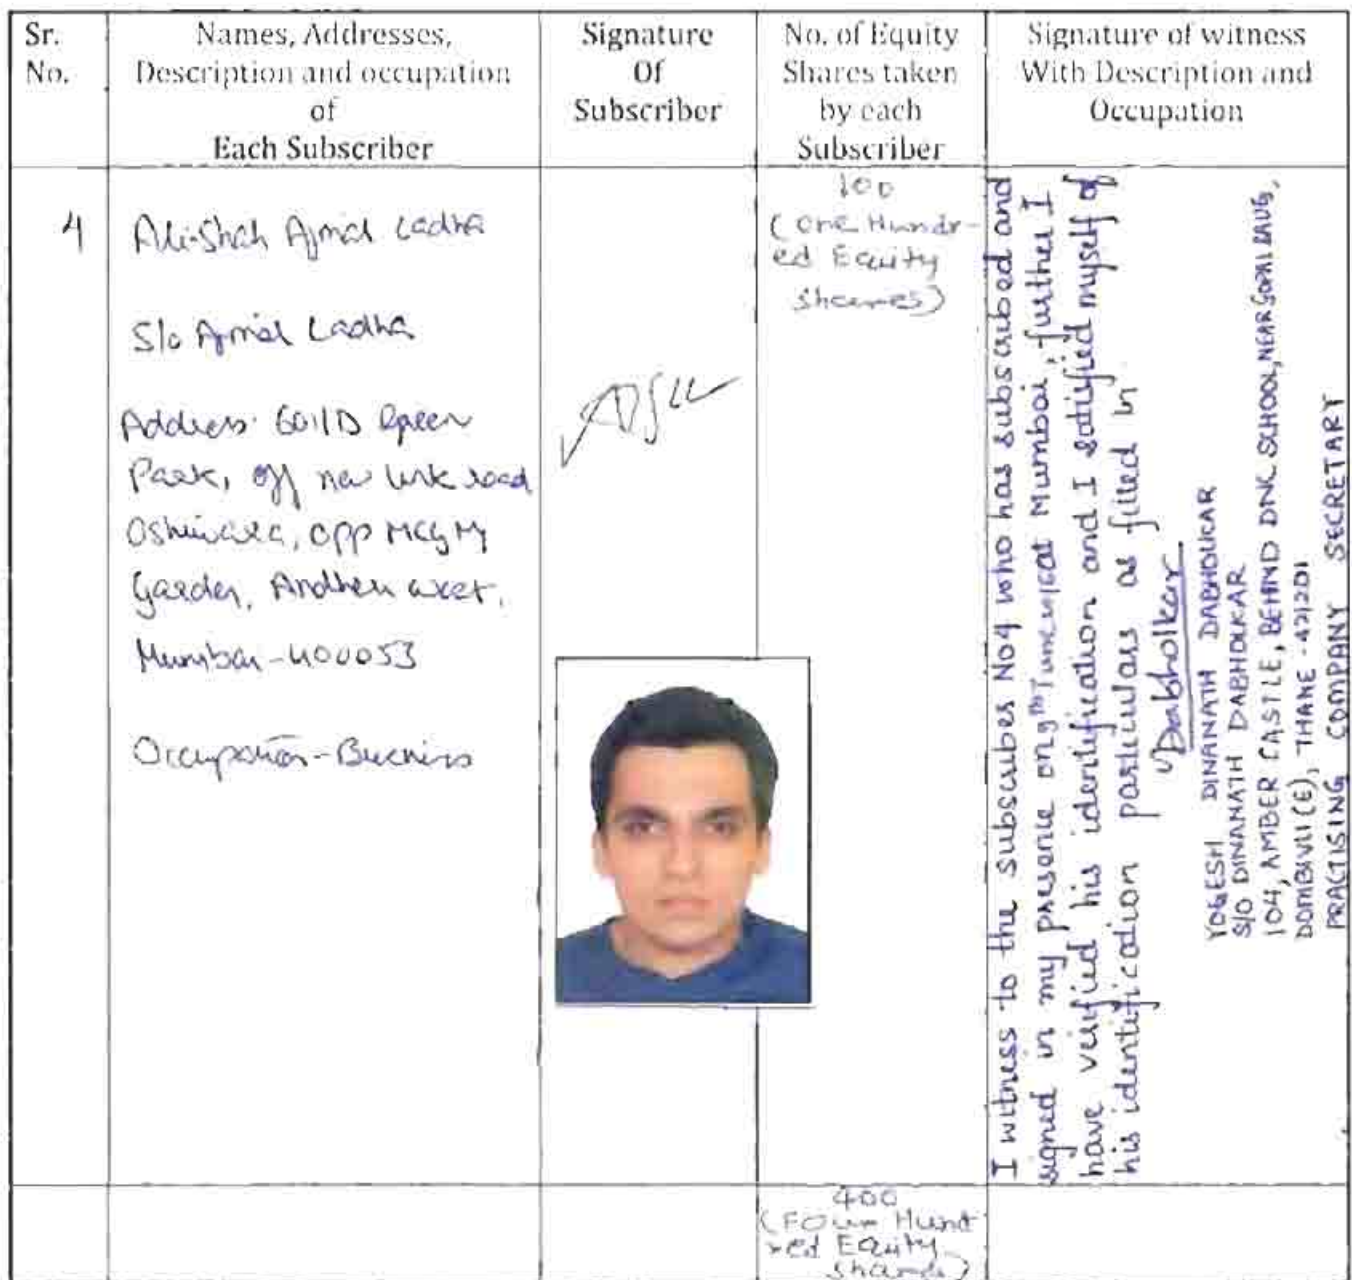 Sr.
No.
Names, Addresses,
Description and occupation
of
Each Subscriber
Signature
Of
Subscriber
No. of Equity
Shares taken
by each
Subscriber
Signature of witness
With Description and
Occupation
4
Ali-Shah Ajmal Ladha
S/o Ajmal Ladha
Address: 601/D Green
Park, off new link road
Oshiwara, opp MCGM
Garden, Andheri west,
Mumbai-400053
Occupation-Business
100
(One Hundr-
ed Equity
shares)
I witness to the subscriber No4 who has subscribed and
signed in my presence on 9th June at Mumbai, further I
have verified his identification and I satisfied myself of
his identification particulars as filled in
Dabholkar
YOGESH DINANATH DABHOLKAR
S/O DINANATH DABHOLKAR
104, AMBER CASTLE, BEHIND DNC SCHOOL, NEAR GOPAL BAUG,
DOMBIVLI (E), THANE - 421201
PRACTISING COMPANY SECRETARY
400
(Four Hund
red Equity
shares)